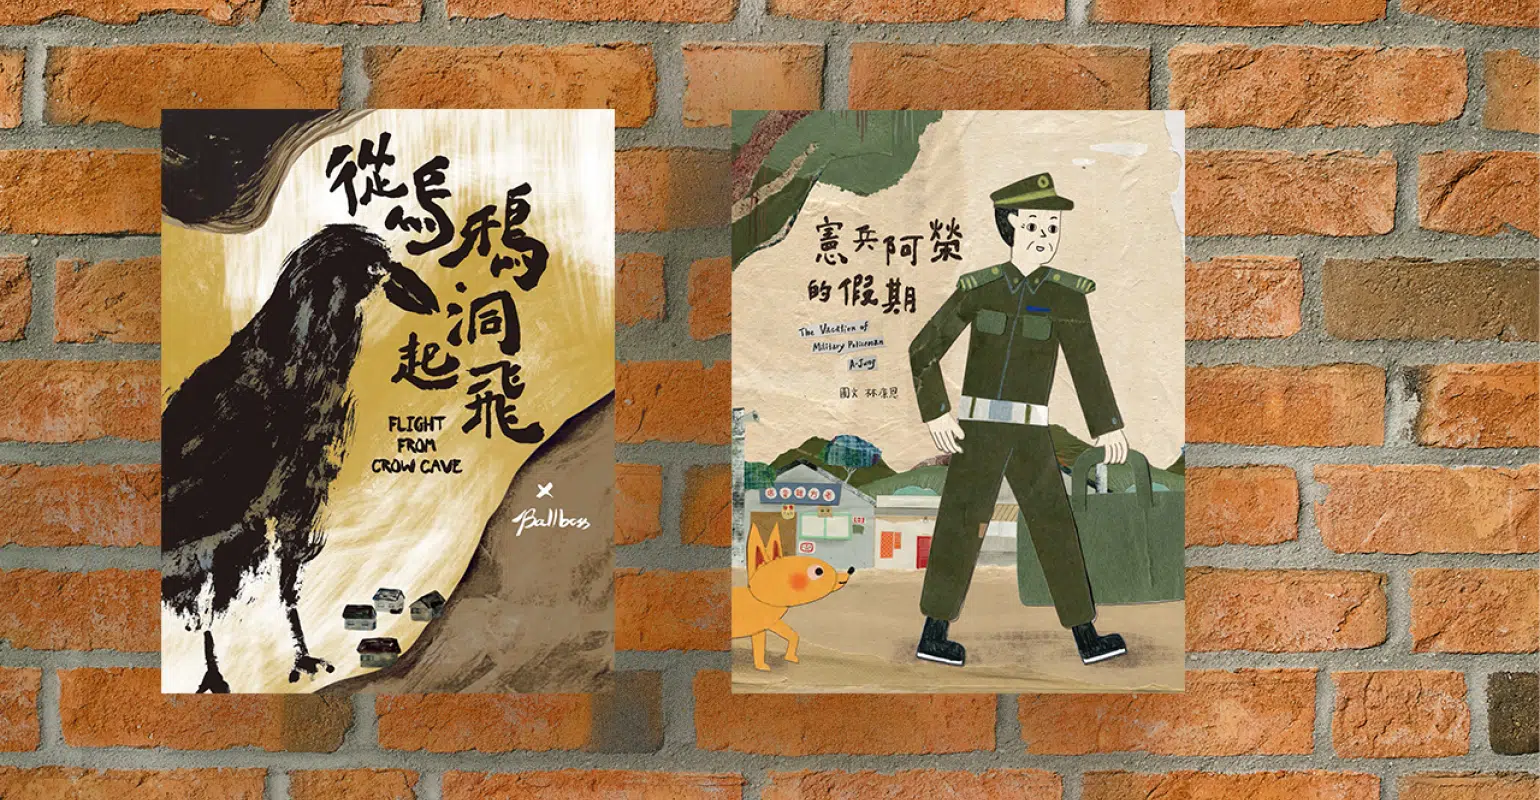 從烏鴉
洞起飛
FLIGHT
FROM
CROW CAVE
×
Ballboss
憲兵阿榮
的假期
The Vacation of
Military Policeman
A-Jung
圖文 林廉恩